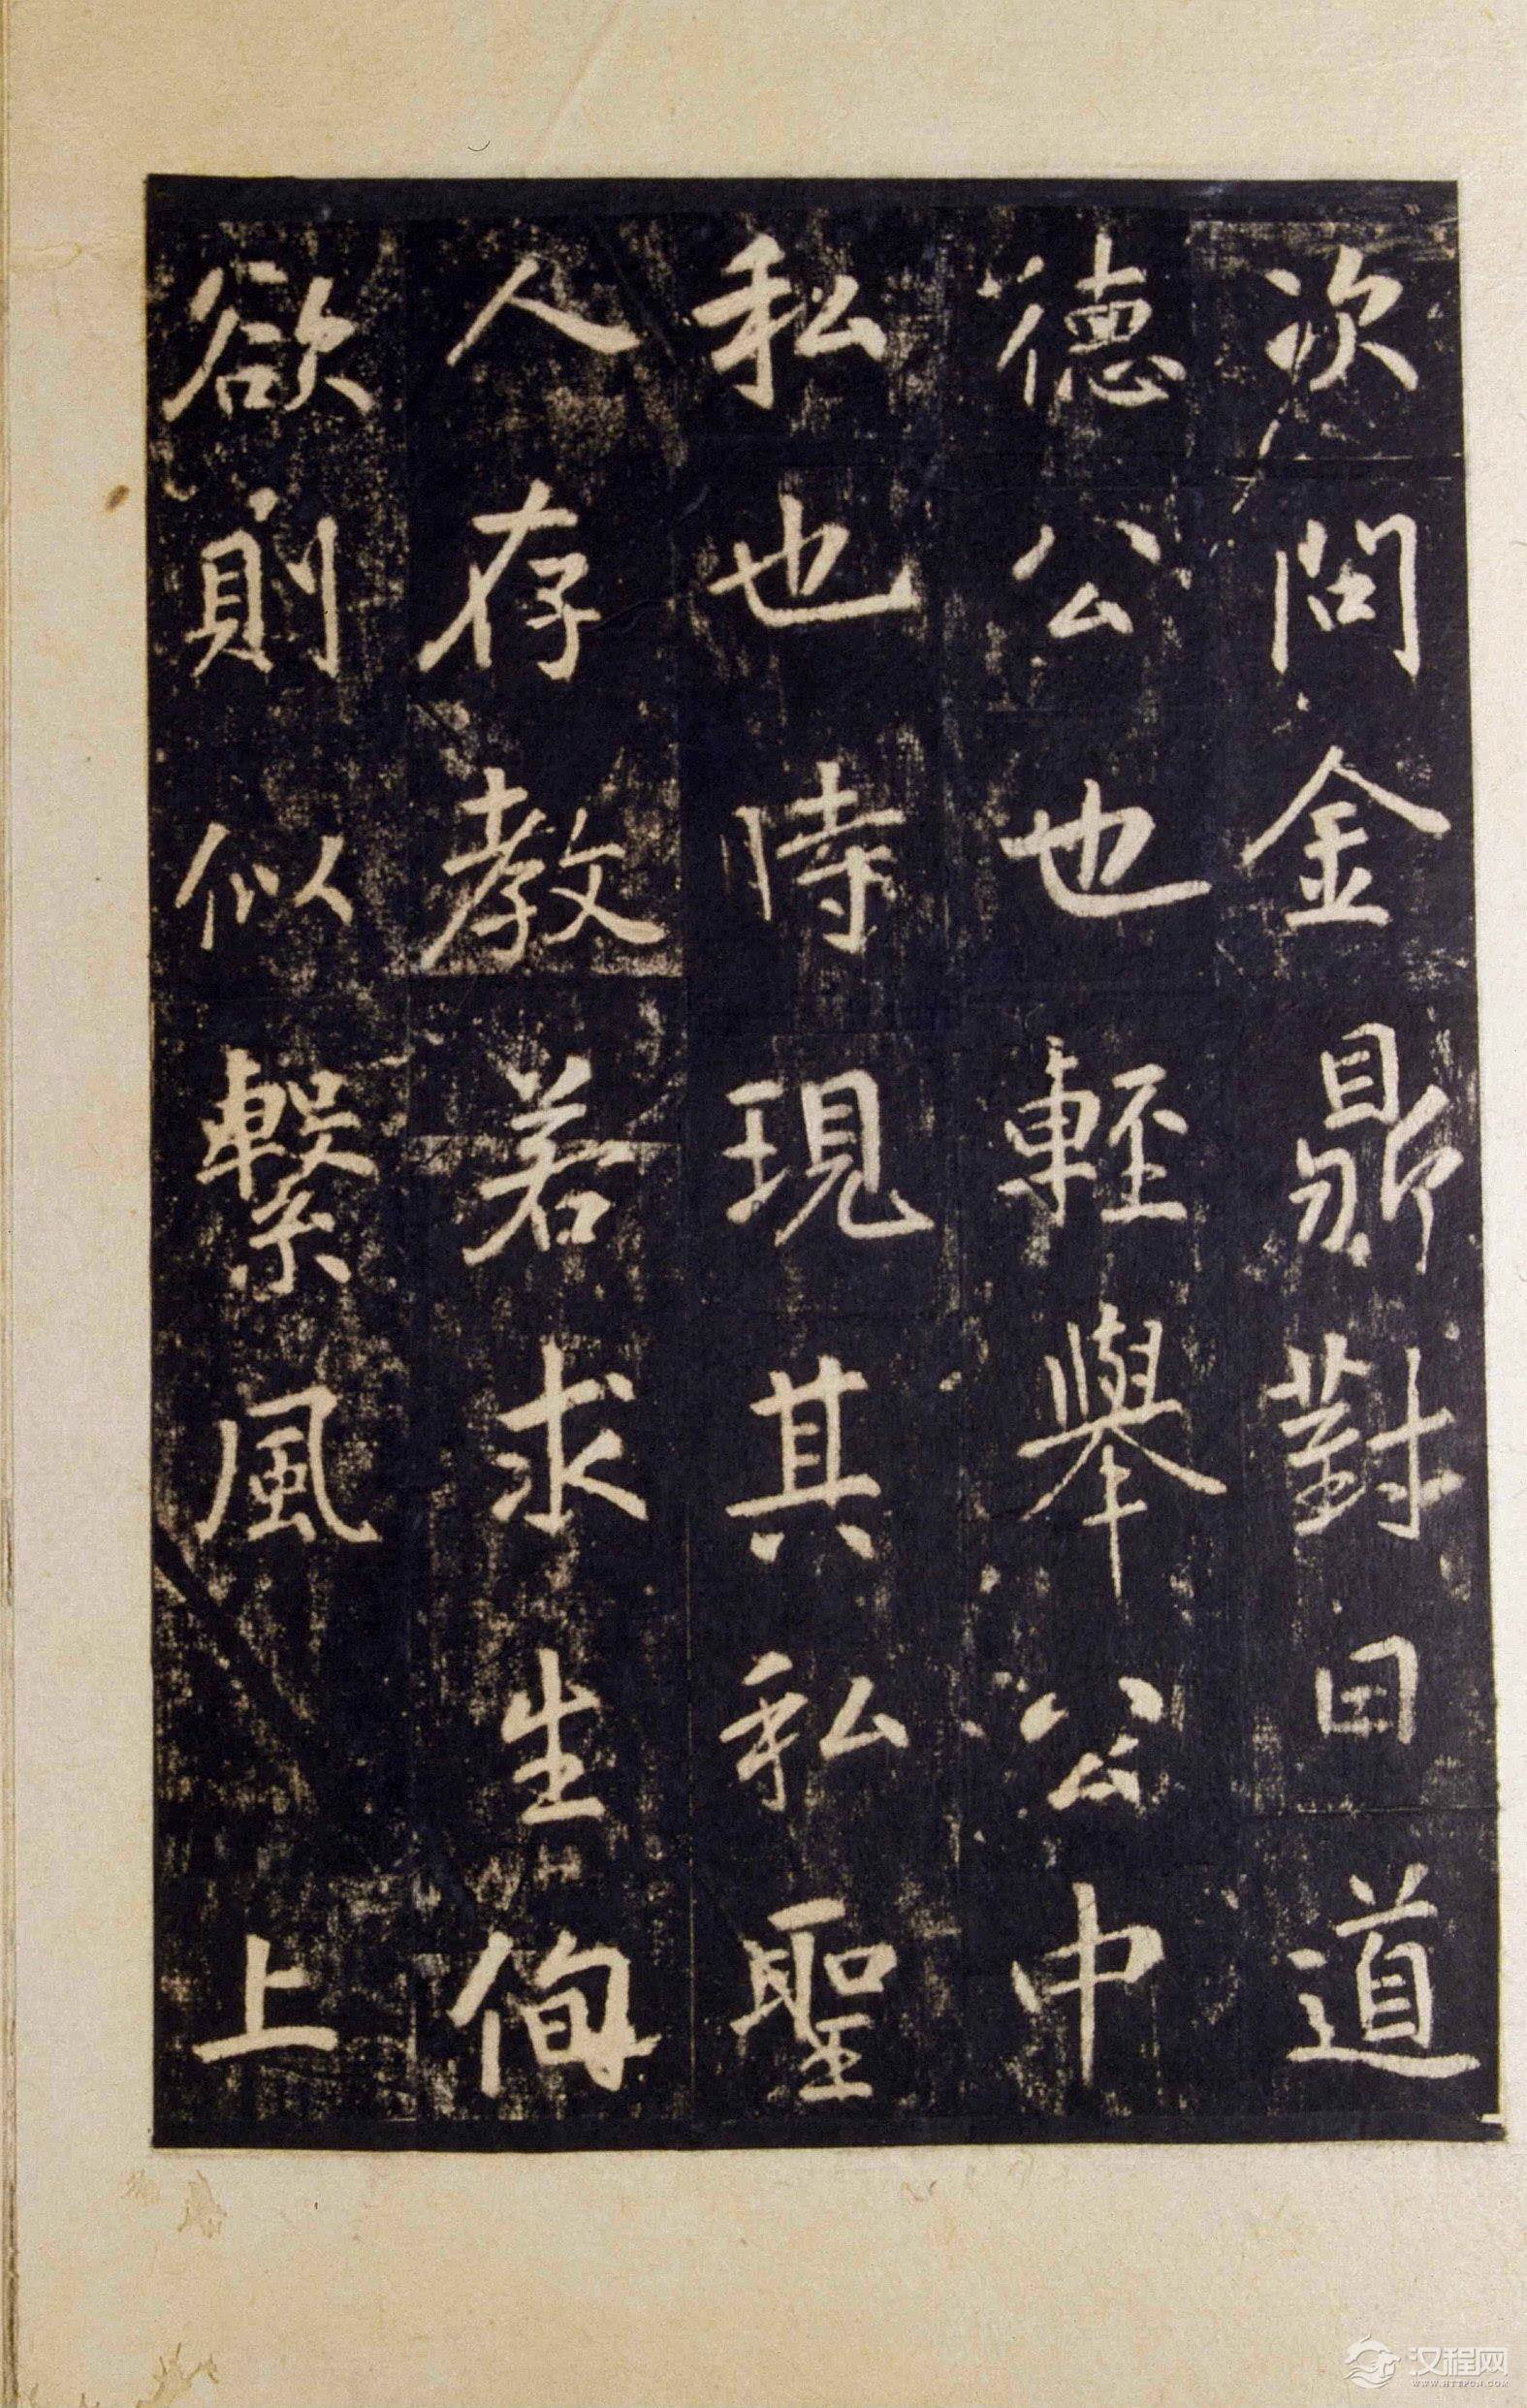 次問金鼎對曰道
德公也輕舉公中
私也時現其私聖
人存教若求生侚
欲則似繫風 上
汉程网
WWW.HTTPCN.COM